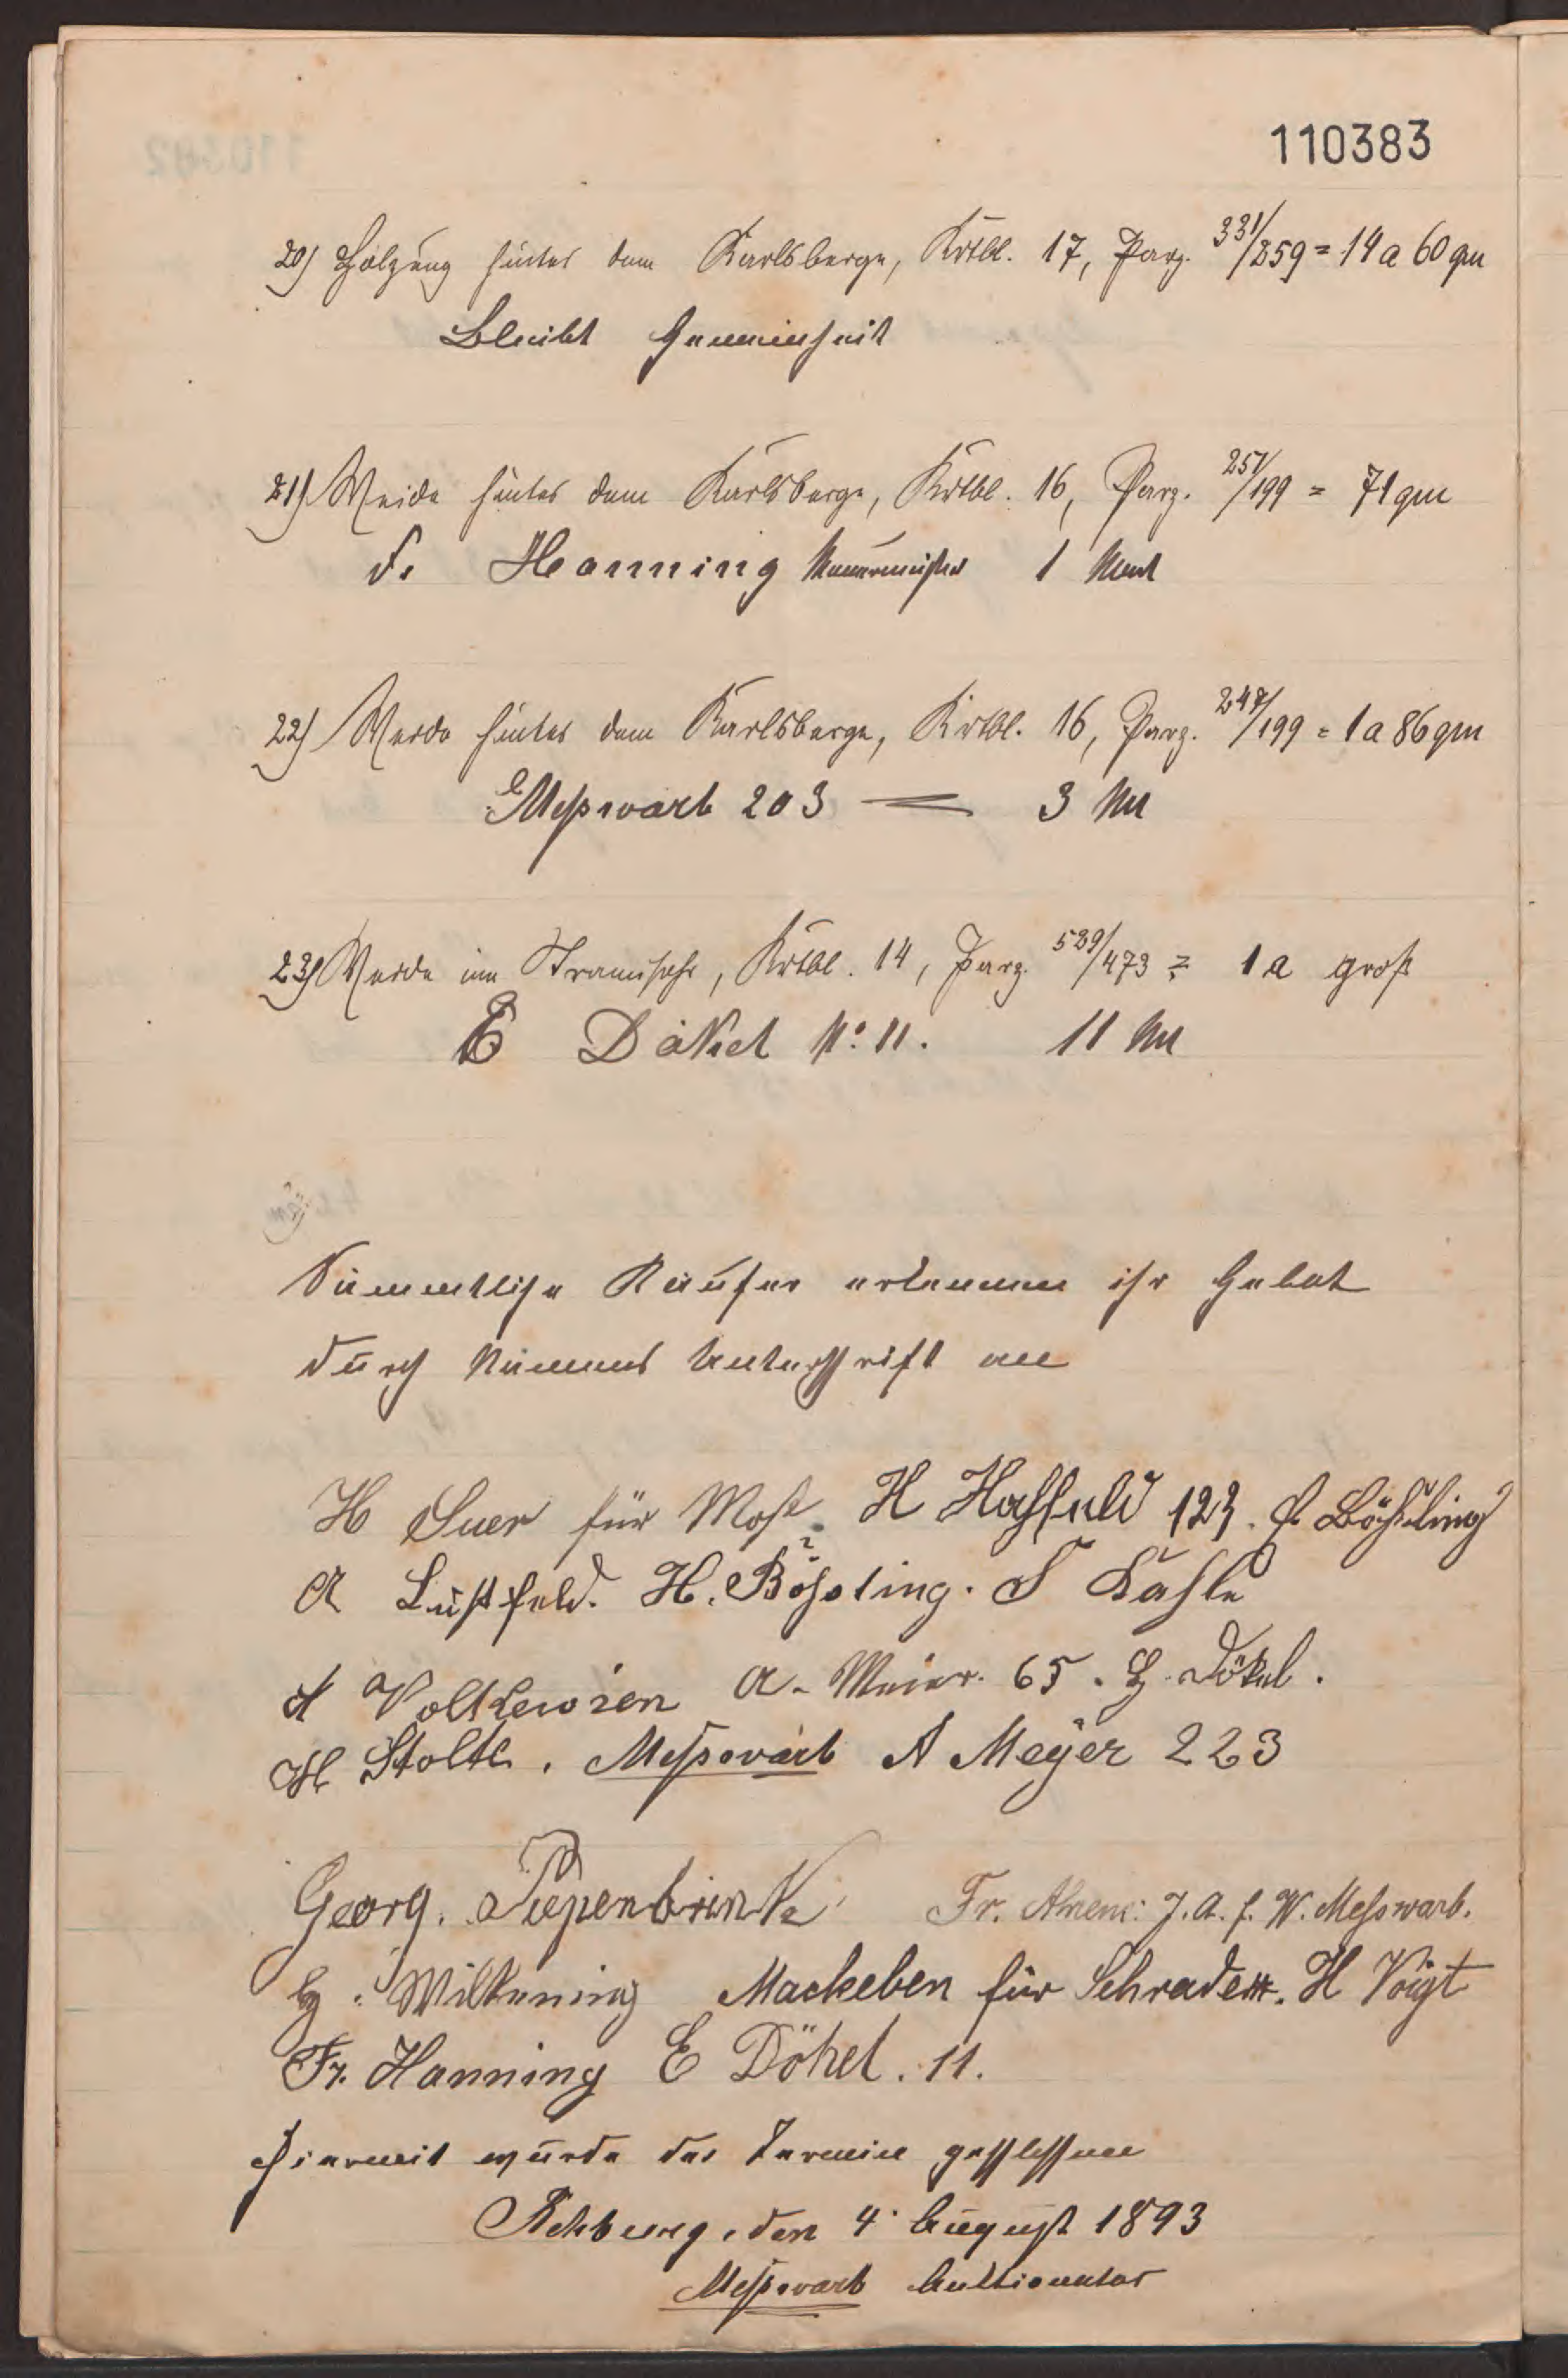 110383
20) Holzung hinter dem Karlsberge, Krtbl. 17, Parz. 331/259 = 14 a 60 qm
Bleibt Gemeinheit
21) Weide hinter dem Karlsberge, Krtbl. 16, Parz. 251/199 = 71 qm
F. Hanning Mauermeister 1 Mark
22) Weide hinter dem Karlsberge, Krtbl. 16, Parz. 247/199 = 1 a 86 qm
E Meßwarb 203 — 3 M
23) Weide im Krtbl. 14, Parz. 529/473 = 1 a groß
E Dökel No. 11. 11 M
Sämmtliche Käufer erkennen ihr Gebot
durch Namens Unterschrift an
H Suer für Most. H Haßfeld 123. f. Bößling
A Lustfeld. H. Bößling. F Kahle
A. Meier. 65. H. Dökel.
H Stolte. Meßwarb A Meyer 223
Georg. Piepenbrink Fr. Ahrens J. A. f. W. Messwarb.
H. Wilkening Mackeben für Schrader. H Voigt
Fr. Hanning E Dökel. 11.
Hiermit wurde der Termin geschlossen
Rehburg, den 4. August 1893
Meßwarb Auktionator